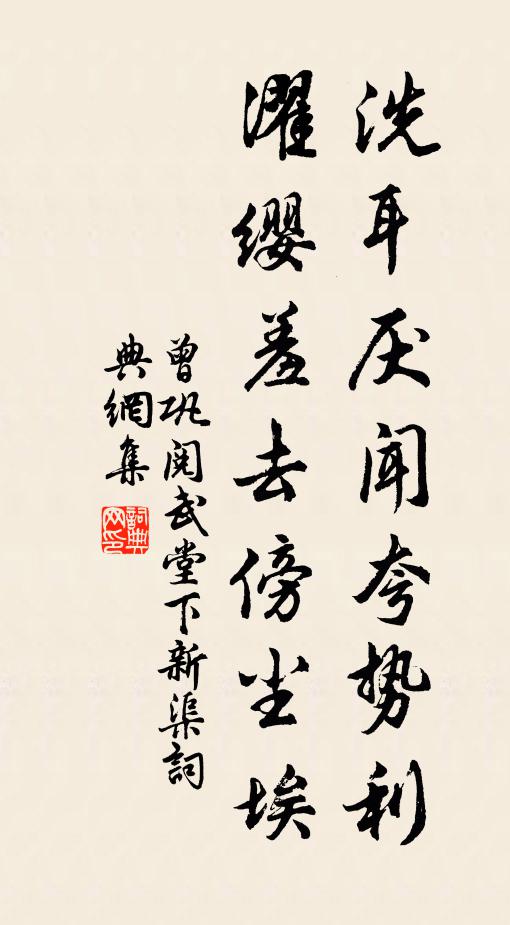 洗耳厌闻夸势利
濯缨羞去傍尘埃
曾巩阅武堂下新渠詞
典網集
詞典網印